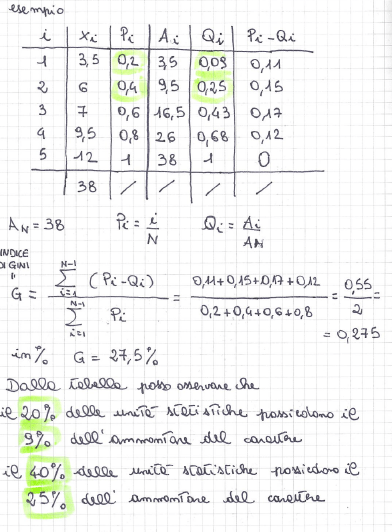 esempio
i xi Pi Ai Qi Pi-Qi
1 3,5 0,2 3,5 0,09 0,11
2 6 0,4 9,5 0,25 0,15
3 7 0,6 16,5 0,43 0,17
4 9,5 0,8 26 0,68 0,12
5 12 1 38 1 0
38 / / / /
AN = 38 Pi = i/N Qi = Ai/AN
INDICE
DI GINI
"
G = ∑ i=1 N-1 (Pi-Qi) / ∑ i=1 N-1 Pi = 0,11+0,15+0,17+0,12 / 0,2+0,4+0,6+0,8 = 0,55 / 2 =
= 0,275
in % G = 27,5%
Dalla tabella posso osservare che
il 20% delle unità statistiche possiedono il
9% dell'ammontare del carattere
il 40% delle unità statistiche possiedono il
25% dell'ammontare del carattere